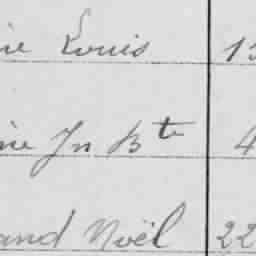 ine Louis 13
ine Jn Bte 4
and Noël 22